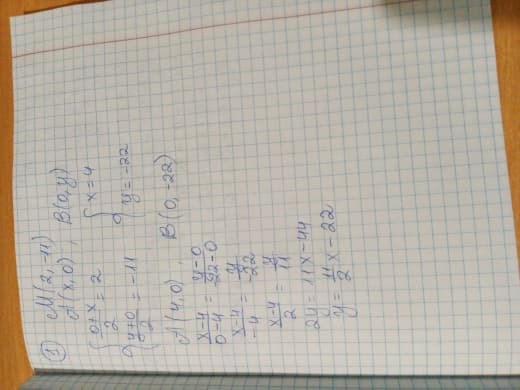 1 M(2, -11)
A(x, 0) , B(0, y)
{ (0+x)/2 = 2 { x = 4
{ (y+0)/2 = -11 { y = -22
A(4, 0) , B(0, -22)
(x-4)/(0-4) = (y-0)/(-22-0)
(x-4)/(-4) = y/(-22)
(x-4)/2 = y/11
2y = 11x - 44
y = 11/2 x - 22